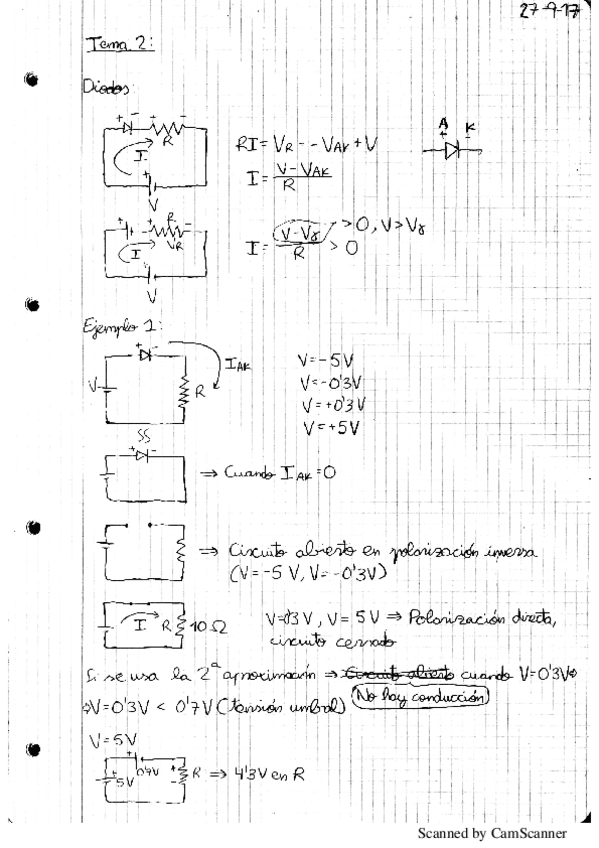 27-9-17
Tema 2:
Diodos
+ -
+ -
R
I
+
V
RI = VR = -VAK + V
I = V - VAK / R
A K
R
+ - - +
VR
I
+
V
I = V - Vγ / R > 0
> 0, V > Vγ
Ejemplo 1:
+ -
IAK
V
R
V = -5V
V = -0'3V
V = +0'3V
V = +5V
+ -
⇒ Cuando IAK = 0
⇒ Circuito abierto en polarización inversa
(V = -5 V, V = -0'3V)
I R 10 Ω
V=0'3 V, V = 5V ⇒ Polarización directa,
circuito cerrado
Si se usa la 2ª aproximación ⇒ Circuito abierto cuando V=0'3V⇒
⇒V=0'3V < 0'7V (tensión umbral) No hay conducción
V = 5V
+
0'7V
+
5V
+
-
R ⇒ 4'3V en R
Scanned by CamScanner